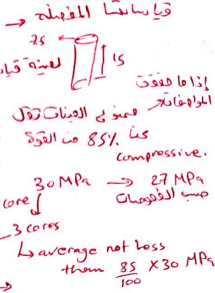 قياساتنا المفضلة →
7.5
15
لعينة قيا
إذا ما حققت
المواصفات
ممنوع العينات تقل
عن 85% من القوة
compressive.
30 MPa → 27 MPa
core حسب الفحوصات
3 cores
↳ average not less
than 85/100 × 30 MPa
→